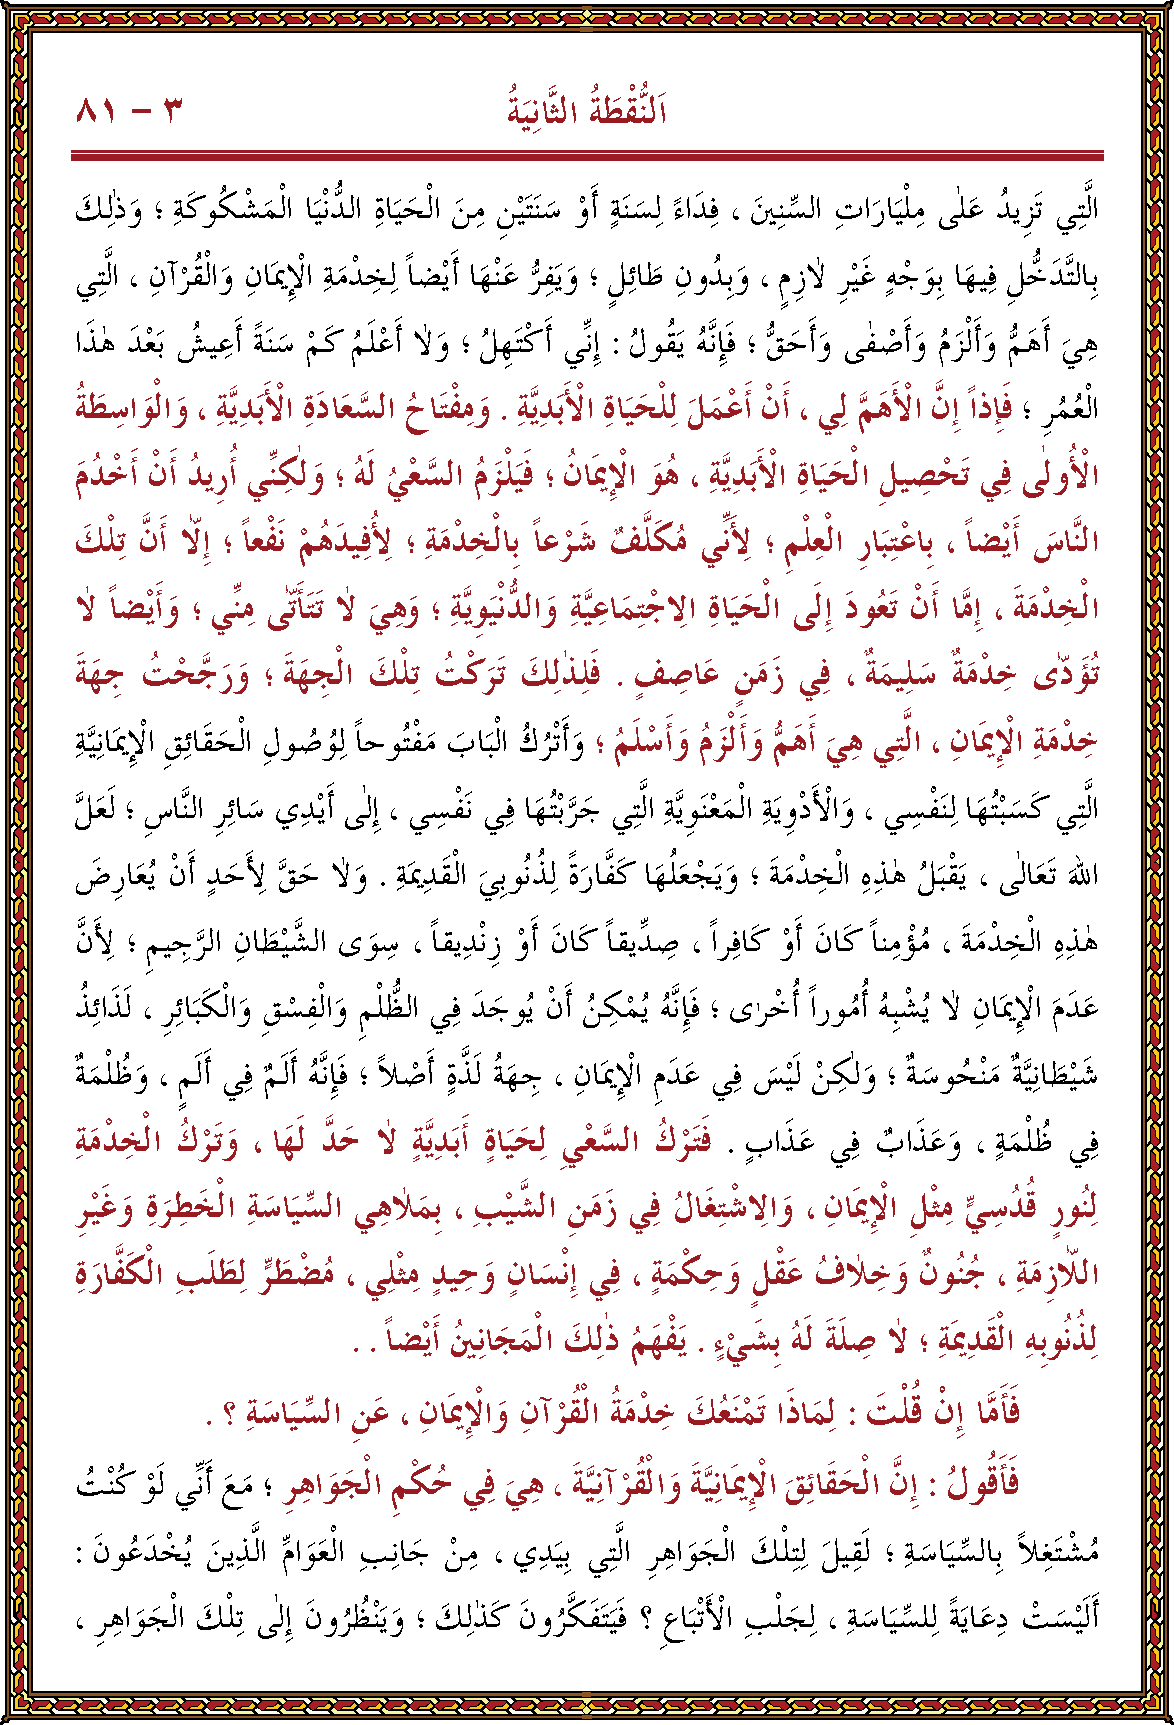 اَلنُّقْطَةُ الثَّانِيَةُ ٣ – ٨١
الَّتِي تَزِيدُ عَلٰى مِلْيَارَاتِ السِّنِينَ ، فِدَاءً لِسَنَةٍ أَوْ سَنَتَيْنِ مِنَ الْحَيَاةِ الدُّنْيَا الْمَشْكُوكَةِ ؛ وَذٰلِكَ
بِالتَّدَخُّلِ فِيهَا بِوَجْهٍ غَيْرِ لاٰزِمٍ ، وَبِدُونِ طَائِلٍ ؛ وَيَفِرُّ عَنْهَا أَيْضاً لِخِدْمَةِ الْإِيمَانِ وَالْقُرْآنِ ، الَّتِي
هِيَ أَهَمُّ وَأَلْزَمُ وَأَصْفٰى وَأَحَقُّ ؛ فَإِنَّهُ يَقُولُ : إِنِّي أَكْتَهِلُ ؛ وَلاٰ أَعْلَمُ كَمْ سَنَةً أَعِيشُ بَعْدَ هٰذَا
الْعُمُرِ ؛ فَإِذاً إِنَّ الْأَهَمَّ لِي ، أَنْ أَعْمَلَ لِلْحَيَاةِ الْأَبَدِيَّةِ . وَمِفْتَاحُ السَّعَادَةِ الْأَبَدِيَّةِ ، وَالْوَاسِطَةُ
الْأُولٰى فِي تَحْصِيلِ الْحَيَاةِ الْأَبَدِيَّةِ ، هُوَ الْإِيمَانُ ؛ فَيَلْزَمُ السَّعْيُ لَهُ ؛ وَلٰكِنِّي أُرِيدُ أَنْ أَخْدُمَ
النَّاسَ أَيْضاً ، بِاعْتِبَارِ الْعِلْمِ ؛ لِأَنِّي مُكَلَّفٌ شَرْعاً بِالْخِدْمَةِ ؛ لِأُفِيدَهُمْ نَفْعاً ؛ إِلاّٰ أَنَّ تِلْكَ
الْخِدْمَةَ ، إِمَّا أَنْ تَعُودَ إِلَى الْحَيَاةِ الاِجْتِمَاعِيَّةِ وَالدُّنْيَوِيَّةِ ؛ وَهِيَ لاٰ تَتَأَتّٰى مِنِّي ؛ وَأَيْضاً لاٰ
تُؤَدّٰى خِدْمَةٌ سَلِيمَةٌ ، فِي زَمَنٍ عَاصِفٍ . فَلِذٰلِكَ تَرَكْتُ تِلْكَ الْجِهَةَ ؛ وَرَجَّحْتُ جِهَةَ
خِدْمَةِ الْإِيمَانِ ، الَّتِي هِيَ أَهَمُّ وَأَلْزَمُ وَأَسْلَمُ ؛ وَأَتْرُكُ الْبَابَ مَفْتُوحاً لِوُصُولِ الْحَقَائِقِ الْإِيمَانِيَّةِ
الَّتِي كَسَبْتُهَا لِنَفْسِي ، وَالْأَدْوِيَةِ الْمَعْنَوِيَّةِ الَّتِي جَرَّبْتُهَا فِي نَفْسِي ، إِلٰى أَيْدِي سَائِرِ النَّاسِ ؛ لَعَلَّ
اللهَ تَعَالٰى ، يَقْبَلُ هٰذِهِ الْخِدْمَةَ ؛ وَيَجْعَلُهَا كَفَّارَةً لِذُنُوبِيَ الْقَدِيمَةِ . وَلاٰ حَقَّ لِأَحَدٍ أَنْ يُعَارِضَ
هٰذِهِ الْخِدْمَةَ ، مُؤْمِناً كَانَ أَوْ كَافِراً ، صِدِّيقاً كَانَ أَوْ زِنْدِيقاً ، سِوَى الشَّيْطَانِ الرَّجِيمِ ؛ لِأَنَّ
عَدَمَ الْإِيمَانِ لاٰ يُشْبِهُ أُمُوراً أُخْرٰى ؛ فَإِنَّهُ يُمْكِنُ أَنْ يُوجَدَ فِي الظُّلْمِ وَالْفِسْقِ وَالْكَبَائِرِ ، لَذَائِذُ
شَيْطَانِيَّةٌ مَنْحُوسَةٌ ؛ وَلٰكِنْ لَيْسَ فِي عَدَمِ الْإِيمَانِ ، جِهَةُ لَذَّةٍ أَصْلاً ؛ فَإِنَّهُ أَلَمٌ فِي أَلَمٍ ، وَظُلْمَةٌ
فِي ظُلْمَةٍ ، وَعَذَابٌ فِي عَذَابٍ . فَتَرْكُ السَّعْيِ لِحَيَاةٍ أَبَدِيَّةٍ لاٰ حَدَّ لَهَا ، وَتَرْكُ الْخِدْمَةِ
لِنُورٍ قُدُسِيٍّ مِثْلِ الْإِيمَانِ ، وَالاِشْتِغَالُ فِي زَمَنِ الشَّيْبِ ، بِمَلاٰهِي السِّيَاسَةِ الْخَطِرَةِ وَغَيْرِ
اللاّٰزِمَةِ ، جُنُونٌ وَخِلاٰفُ عَقْلٍ وَحِكْمَةٍ ، فِي إِنْسَانٍ وَحِيدٍ مِثْلِي ، مُضْطَرٍّ لِطَلَبِ الْكَفَّارَةِ
لِذُنُوبِهِ الْقَدِيمَةِ ؛ لاٰ صِلَةَ لَهُ بِشَيْءٍ . يَفْهَمُ ذٰلِكَ الْمَجَانِينُ أَيْضاً . .
فَأَمَّا إِنْ قُلْتَ : لِمَاذَا تَمْنَعُكَ خِدْمَةُ الْقُرْآنِ وَالْإِيمَانِ ، عَنِ السِّيَاسَةِ ؟ .
فَأَقُولُ : إِنَّ الْحَقَائِقَ الْإِيمَانِيَّةَ وَالْقُرْآنِيَّةَ ، هِيَ فِي حُكْمِ الْجَوَاهِرِ ؛ مَعَ أَنِّي لَوْ كُنْتُ
مُشْتَغِلاً بِالسِّيَاسَةِ ؛ لَقِيلَ لِتِلْكَ الْجَوَاهِرِ الَّتِي بِيَدِي ، مِنْ جَانِبِ الْعَوَامِّ الَّذِينَ يُخْدَعُونَ :
أَلَيْسَتْ دِعَايَةً لِلسِّيَاسَةِ ، لِجَلْبِ الْأَتْبَاعِ ؟ فَيَتَفَكَّرُونَ كَذٰلِكَ ؛ وَيَنْظُرُونَ إِلٰى تِلْكَ الْجَوَاهِرِ ،